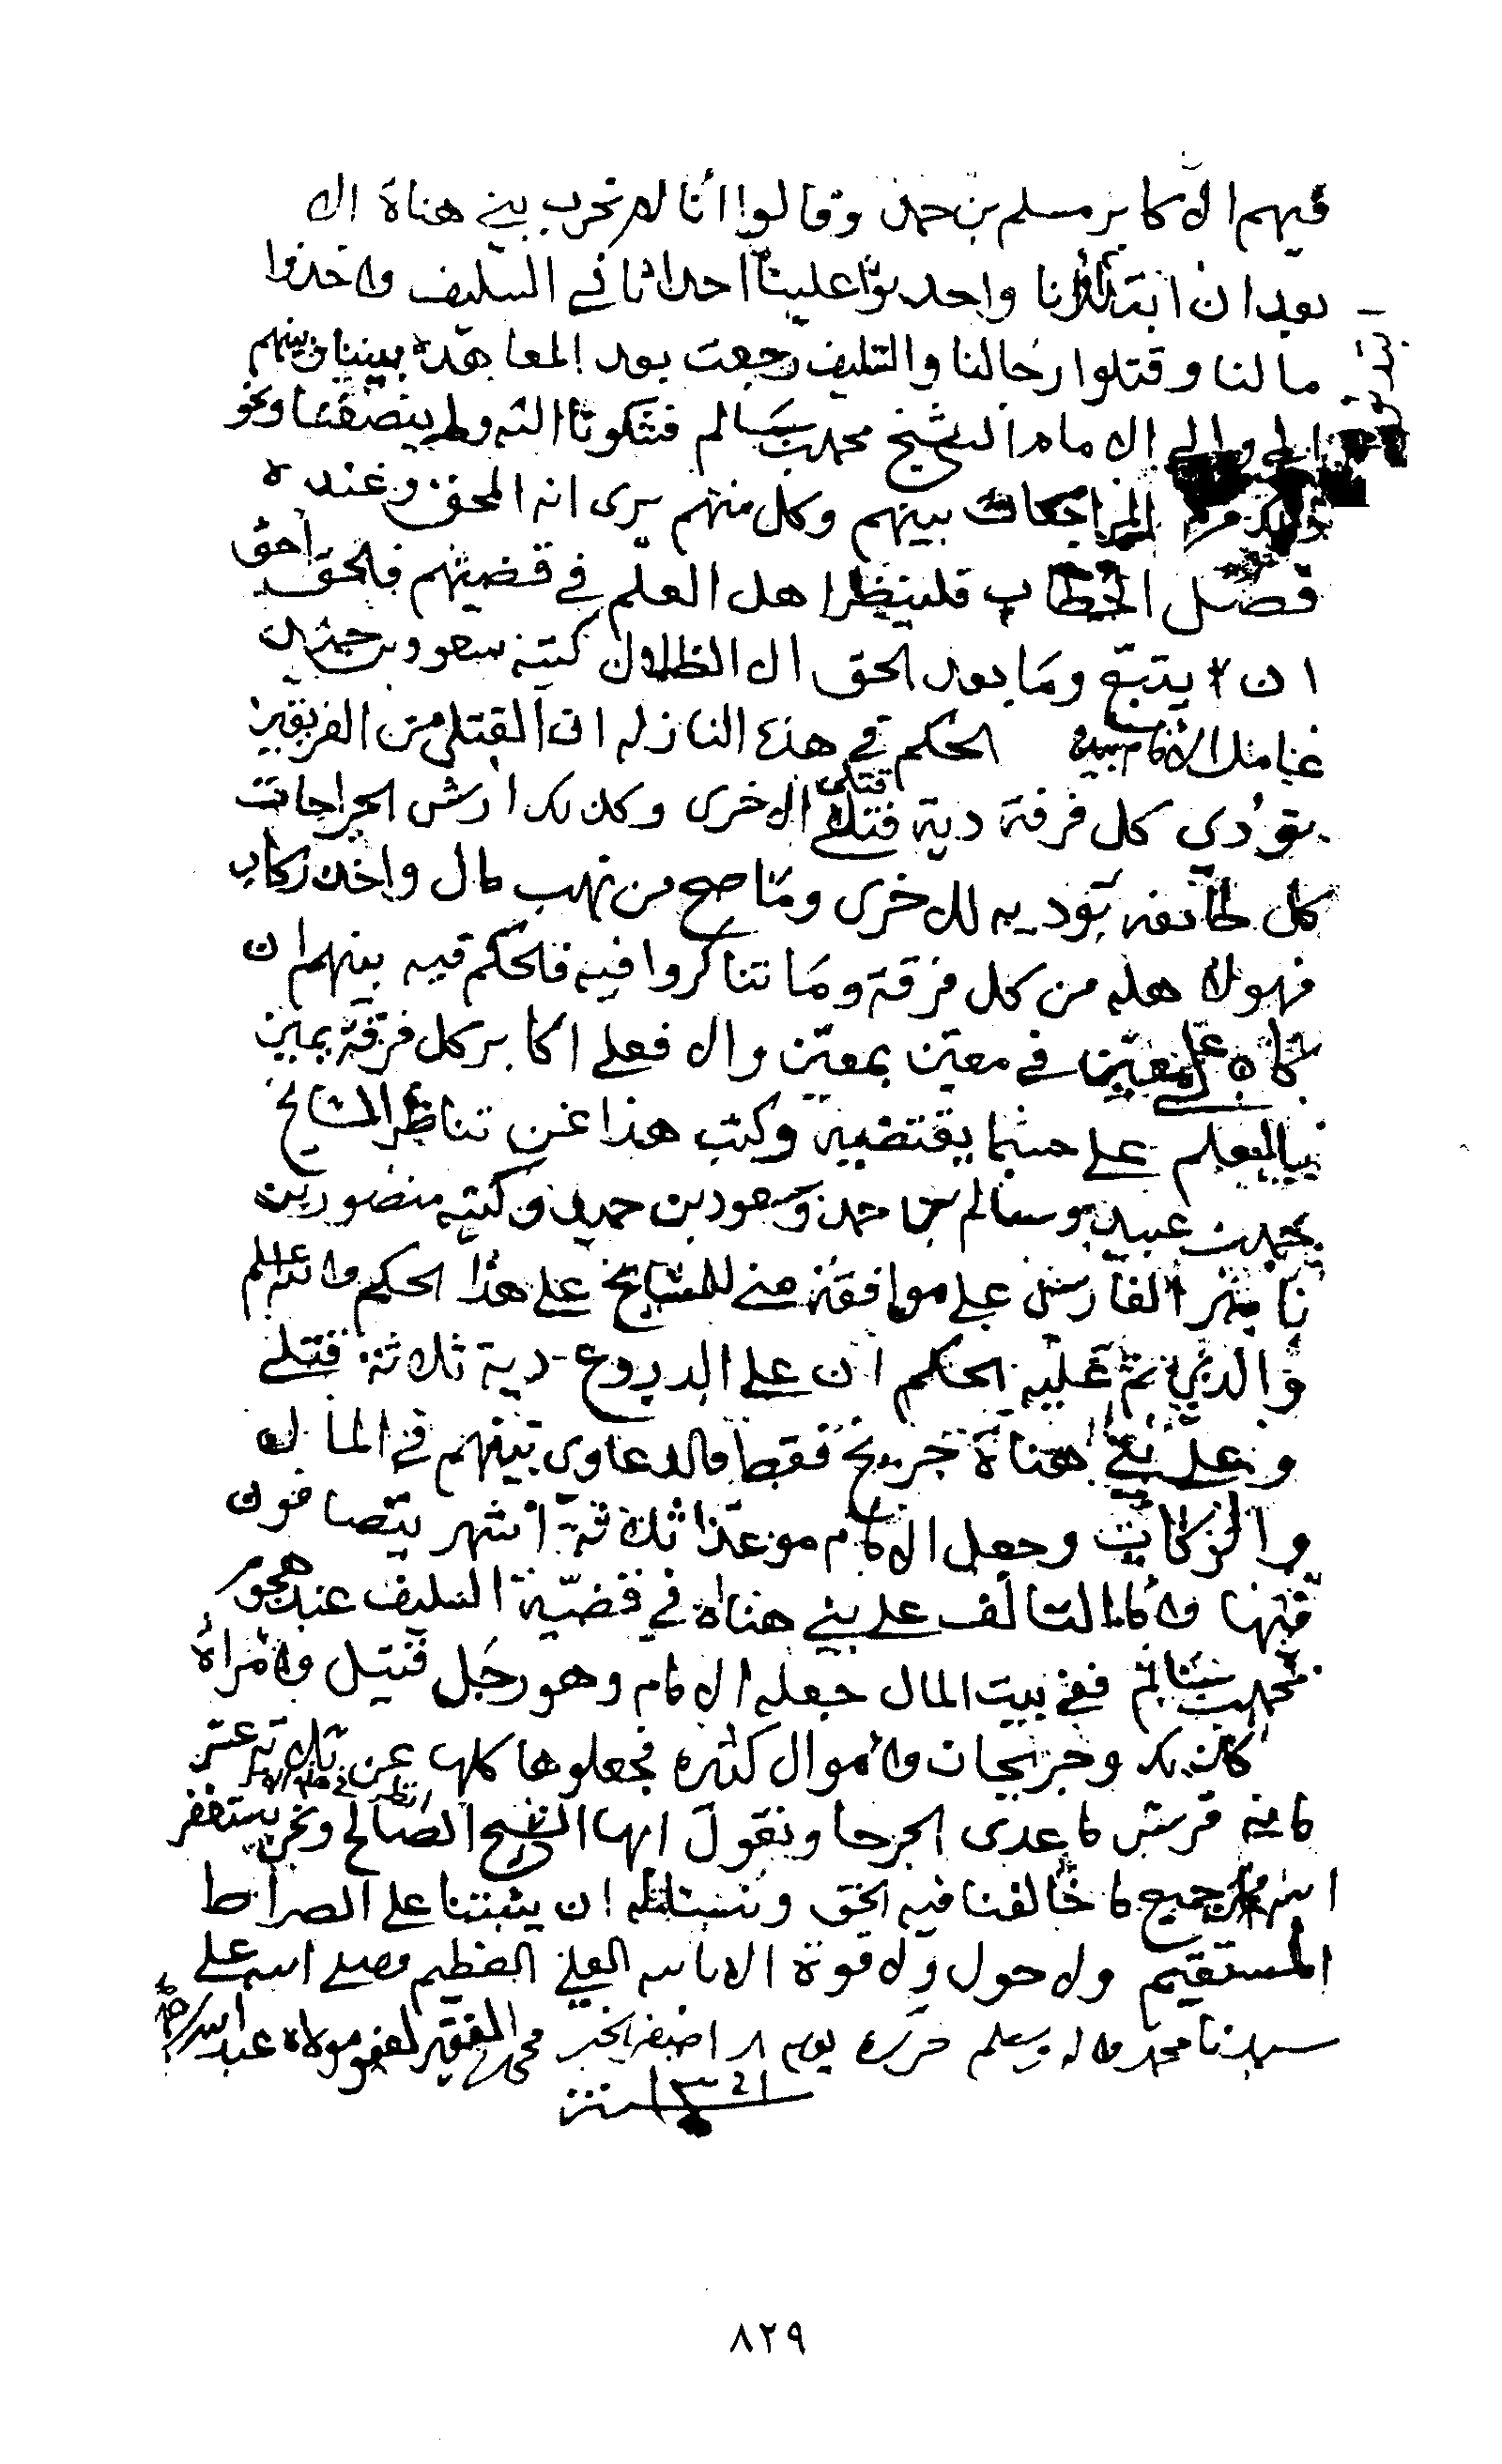 فيهم الاكابر مسلم بن حمد وقالوا انا لم نحرب بني هناة الا
بعد ان واحدثوا علينا احداثا في السليف واخذوا
مالنا وقتلوا رجالنا والسليف رجعت بعد المعاهدة بيننا وبينهم
الى والي الامام الشيخ محمد بن سالم فشكونا اليه ولم ينصفنا ونحو
المراجعات بينهم وكل منهم يرى انه المحق وعنده
فصل الخطاب فلينظر اهل العلم في قضيتهم فالحق احق
ان يتبع وما بعد الحق الا الظلال كتبه سعود بن حميد
عامل الامام بيده الحكم في هذه النازله ان القتلى من الفريقين
تؤدي كل فرقة دية قتلى الاخرى وكذلك ارش الجراحات
كل طائفه تؤديه للاخرى وما صح من نهب مال واخذ ركاب
فهو لاهله من كل فرقة وما تناكروا فيه فالحكم فيه بينهم ان
كان على معين في معين بمعين والا فعلى اكابر كل فرقة يمين
بالعلم على حسبما يقتضيه وكتب هذا عن تناظر المشايخ
محمد بن عبيد وسالم بن حمد وسعود بن حميد وكتبه منصور بن
ناصر الفارسي على موافقة مني للمشايخ على هذا الحكم والله اعلم
والذي تم عليه الحكم ان على الدروع دية ثلاثة قتلى
وعلى بني هناة جريح فقط والدعاوي بينهم في المال
والزكايب وجعل الامام موعدا ثلاثة اشهر يتصافون
فيها واما التالف على بني هناة في قضية السليف عند هجوم
محمد بن سالم ففي بيت المال جعله الامام وهو رجل قتيل وامراة
كذلك وجريحان واموال كثيره فجعلوها كلها عن ثلاثة عشر
ماية قرش ما عدى الجرحا ونقول ايها الشيخ الصالح ونحن نستغفر
الله من جميع ما خالفنا فيه الحق ونسئله ان يثبتنا على الصراط
المستقيم ولا حول ولا قوة الا بالله العلي العظيم وصلى الله على
سيدنا محمد واله وسلم حرره يوم الفقير لعفو مولاه عبد الله
٨٢٩